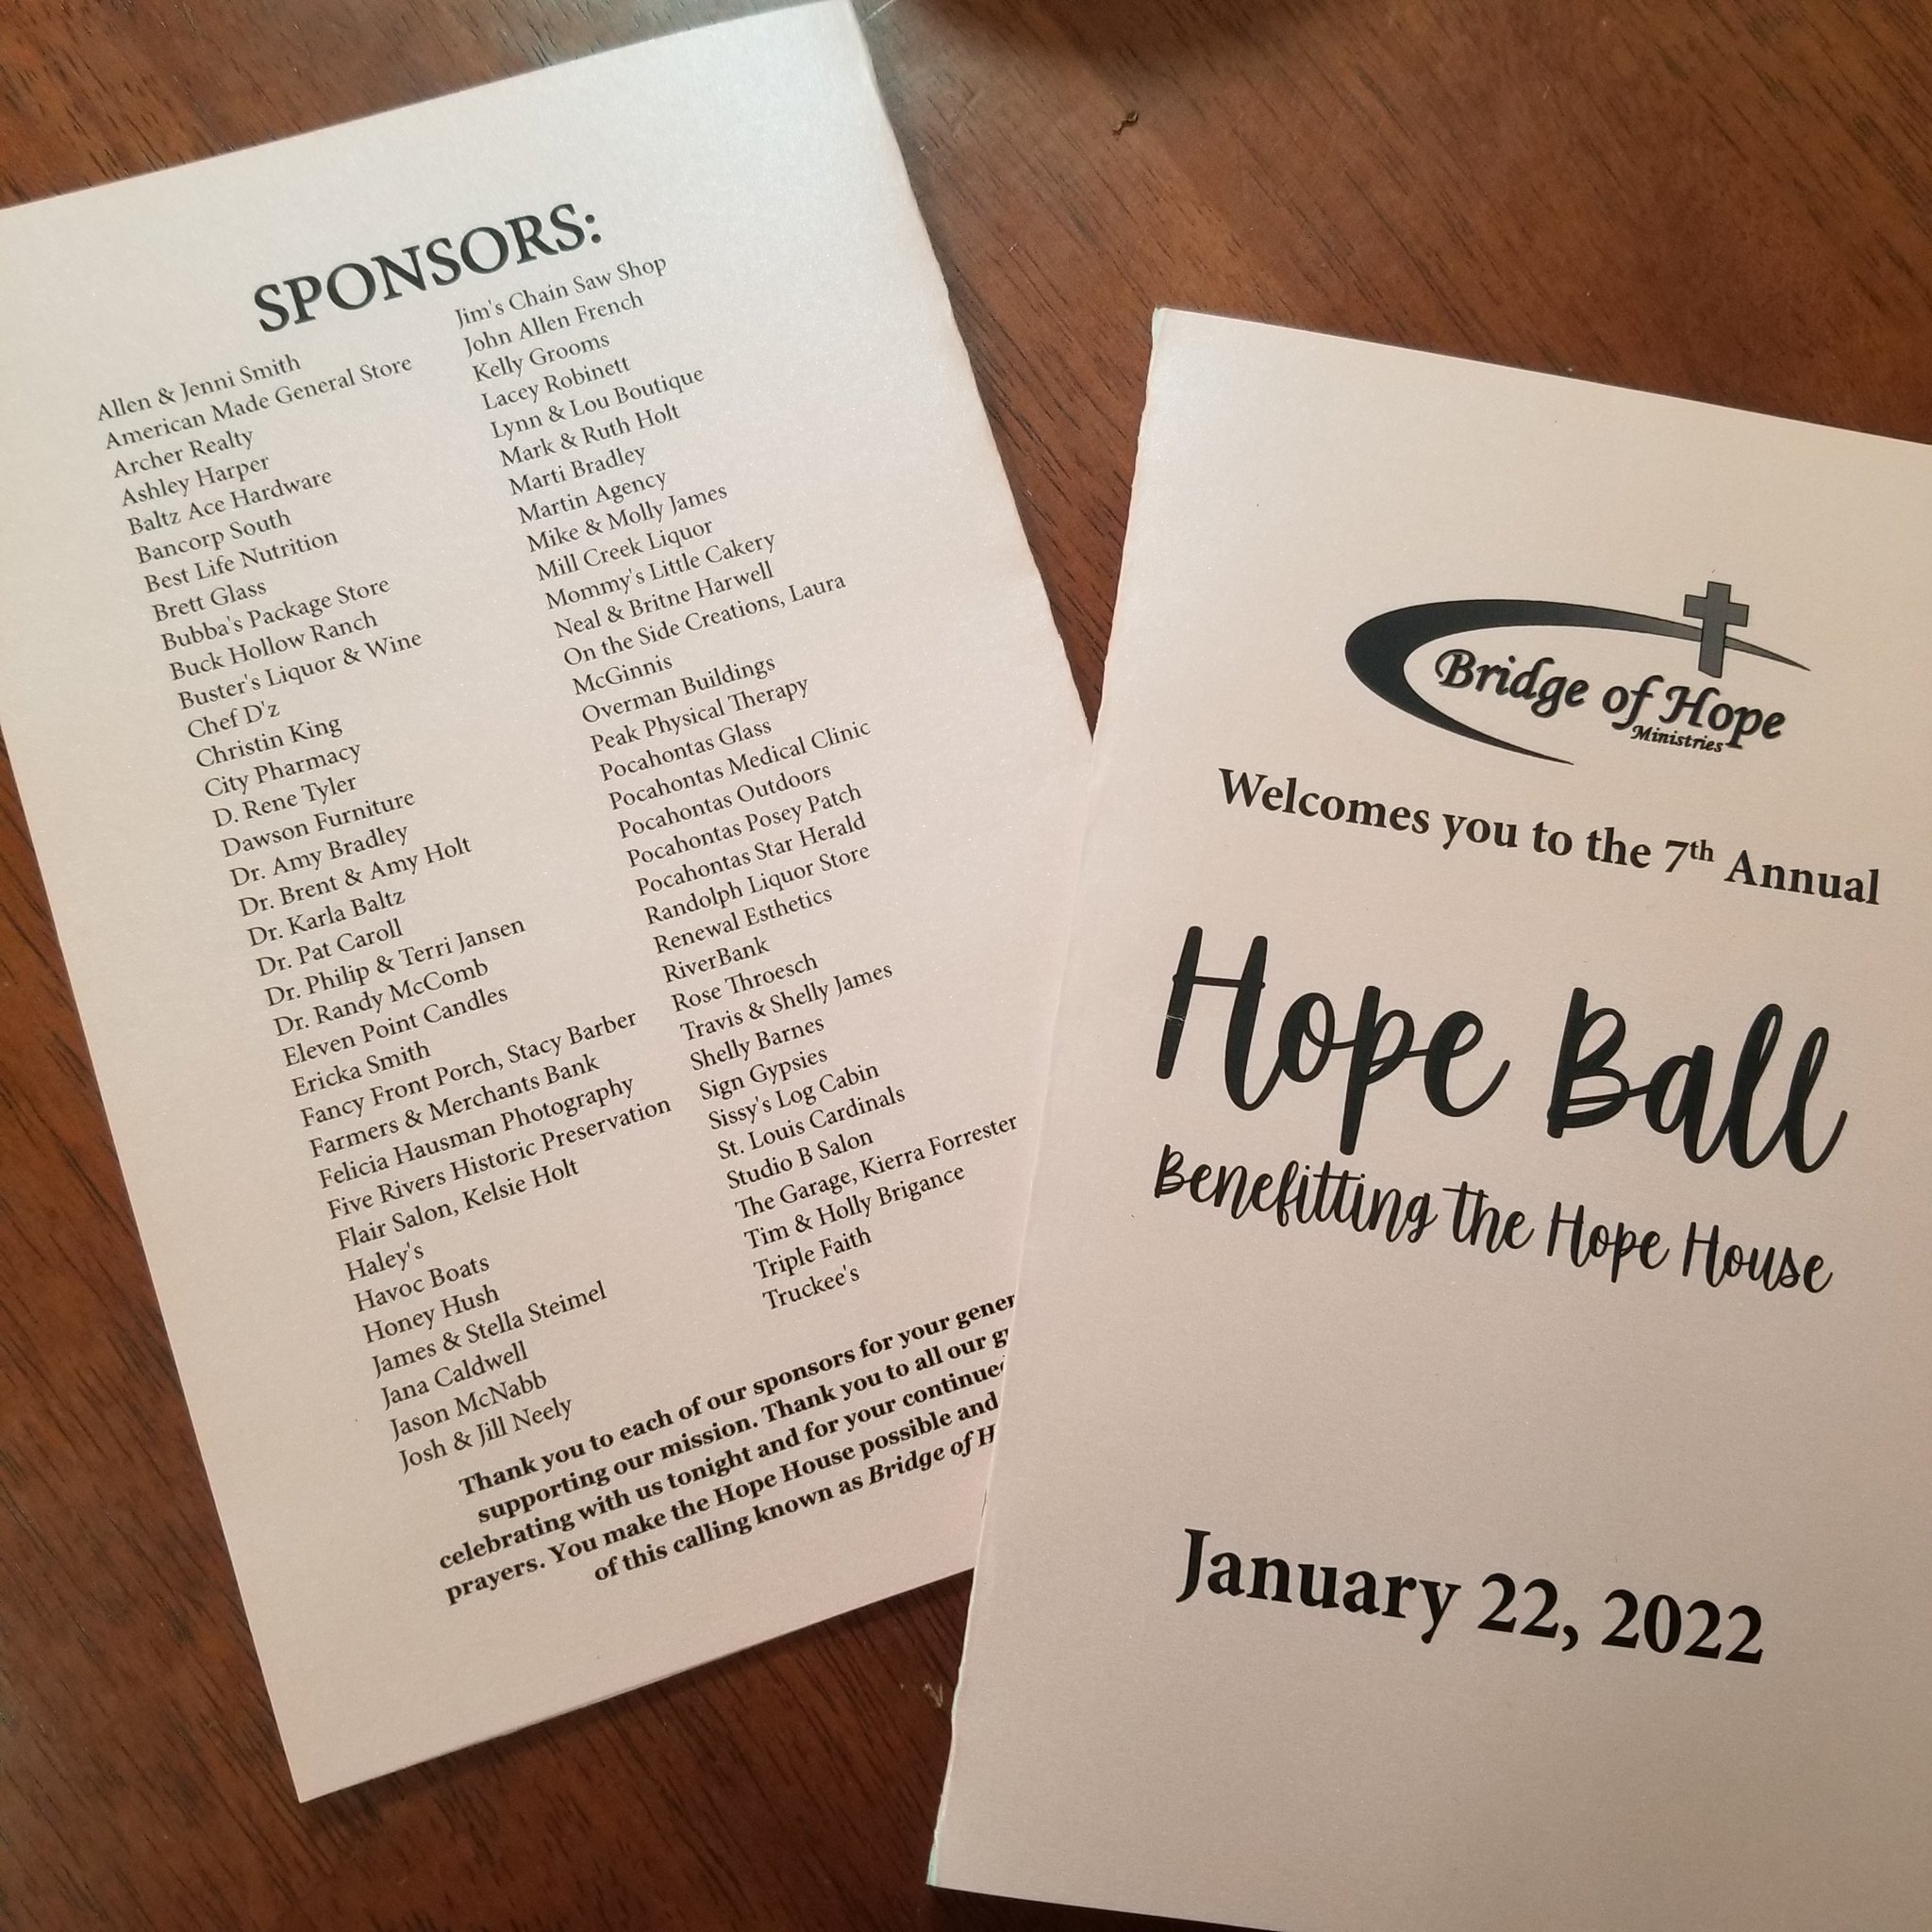 SPONSORS:
Allen & Jenni Smith
American Made General Store
Archer Realty
Ashley Harper
Baltz Ace Hardware
Bancorp South
Best Life Nutrition
Brett Glass
Bubba's Package Store
Buck Hollow Ranch
Buster's Liquor & Wine
Chef D'z
Christin King
City Pharmacy
D. Rene Tyler
Dawson Furniture
Dr. Amy Bradley
Dr. Brent & Amy Holt
Dr. Karla Baltz
Dr. Pat Caroll
Dr. Philip & Terri Jansen
Dr. Randy McComb
Eleven Point Candles
Ericka Smith
Fancy Front Porch, Stacy Barber
Farmers & Merchants Bank
Felicia Hausman Photography
Five Rivers Historic Preservation
Flair Salon, Kelsie Holt
Haley's
Havoc Boats
Honey Hush
James & Stella Steimel
Jana Caldwell
Jason McNabb
Josh & Jill Neely
Jim's Chain Saw Shop
John Allen French
Kelly Grooms
Lacey Robinett
Lynn & Lou Boutique
Mark & Ruth Holt
Marti Bradley
Martin Agency
Mike & Molly James
Mill Creek Liquor
Mommy's Little Cakery
Neal & Britne Harwell
On the Side Creations, Laura
McGinnis
Overman Buildings
Peak Physical Therapy
Pocahontas Glass
Pocahontas Medical Clinic
Pocahontas Outdoors
Pocahontas Posey Patch
Pocahontas Star Herald
Randolph Liquor Store
Renewal Esthetics
RiverBank
Rose Throesch
Travis & Shelly James
Shelly Barnes
Sign Gypsies
Sissy's Log Cabin
St. Louis Cardinals
Studio B Salon
The Garage, Kierra Forrester
Tim & Holly Brigance
Triple Faith
Truckee's
Thank you to each of our sponsors for your
supporting our mission. Thank you to all our
celebrating with us tonight and for your
prayers. You make the Hope House possible and
of this calling known as Bridge of
Bridge of Hope
Ministries
Welcomes you to the 7th Annual
Hope Ball
Benefitting the Hope House
January 22, 2022